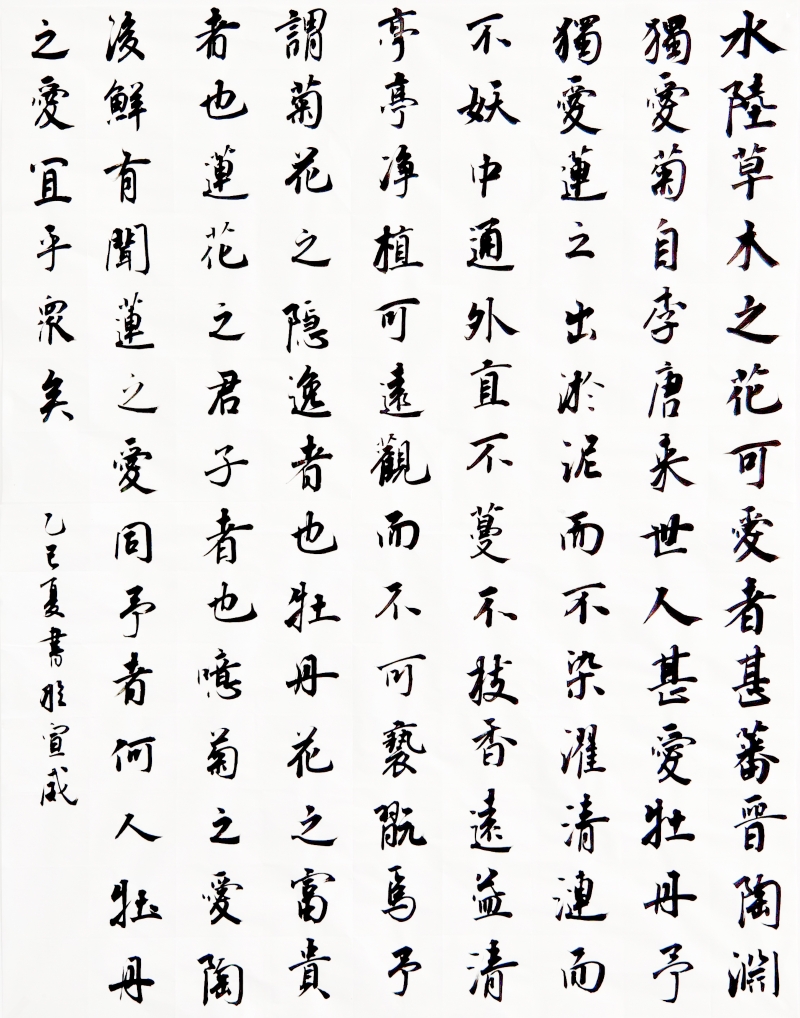 水陸草木之花可愛者甚蕃晋陶淵
獨愛菊自李唐来世人甚愛牡丹予
獨愛蓮之出淤泥而不染濯清漣而
不妖中通外直不蔓不枝香遠益清
亭亭净植可遠觀而不可褻翫焉予
謂菊花之隐逸者也牡丹花之富貴
者也蓮花之君子者也噫菊之愛陶
後鮮有聞蓮之愛同予者何人牡丹
之愛宜乎眾矣
乙巳夏書於宣威